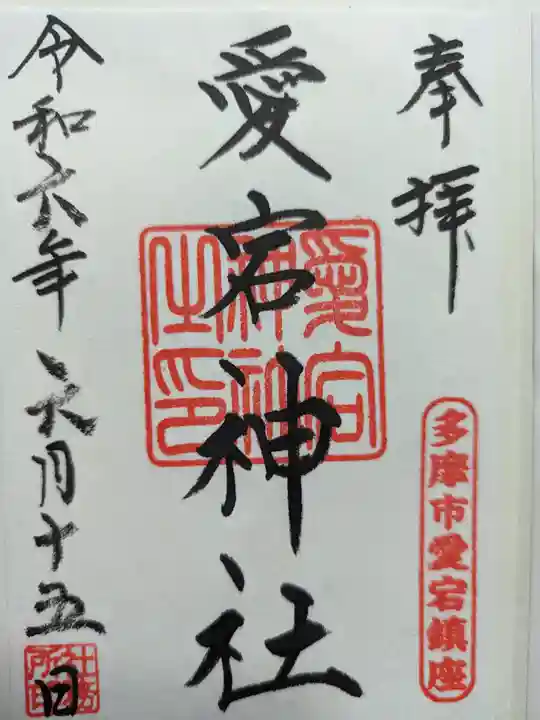 奉拝
多摩市愛宕鎮座
愛宕神社
愛宕神社之印
令和六年六月十五日
社務所印